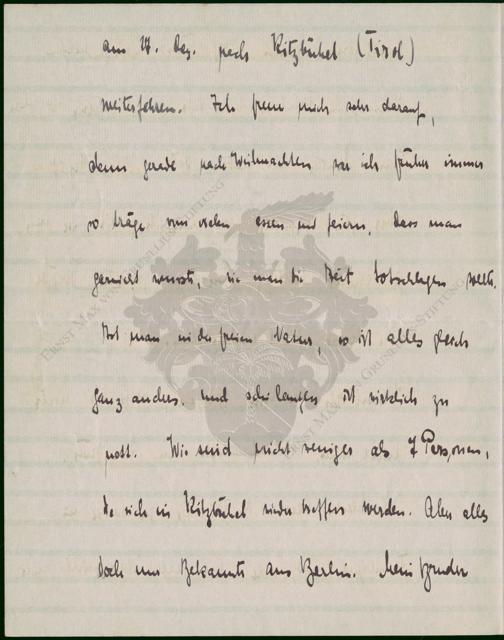 am 27. Dez. nach Kitzbühel (Tirol)
weiterfahren. Ich freue mich sehr darauf,
denn gerade nach Weihnachten war ich früher immer
so träge vom vielen essen und feiern, dass man
garnicht wusste, wie man die Zeit totschlagen sollte.
Ist man in der freien Natur, so ist alles gleich
ganz anders und schilaufen ist wirklich zu
nett. Wir sind nicht weniger als 7 Personen,
die sich in Kitzbühel wieder treffen werden. Aber alles
doch nur Bekannte aus Berlin. Mein Bruder
ERNST MAX VON GRUNELIUS-STIFTUNG
ERNST MAX VON GRUNELIUS-STIFTUNG